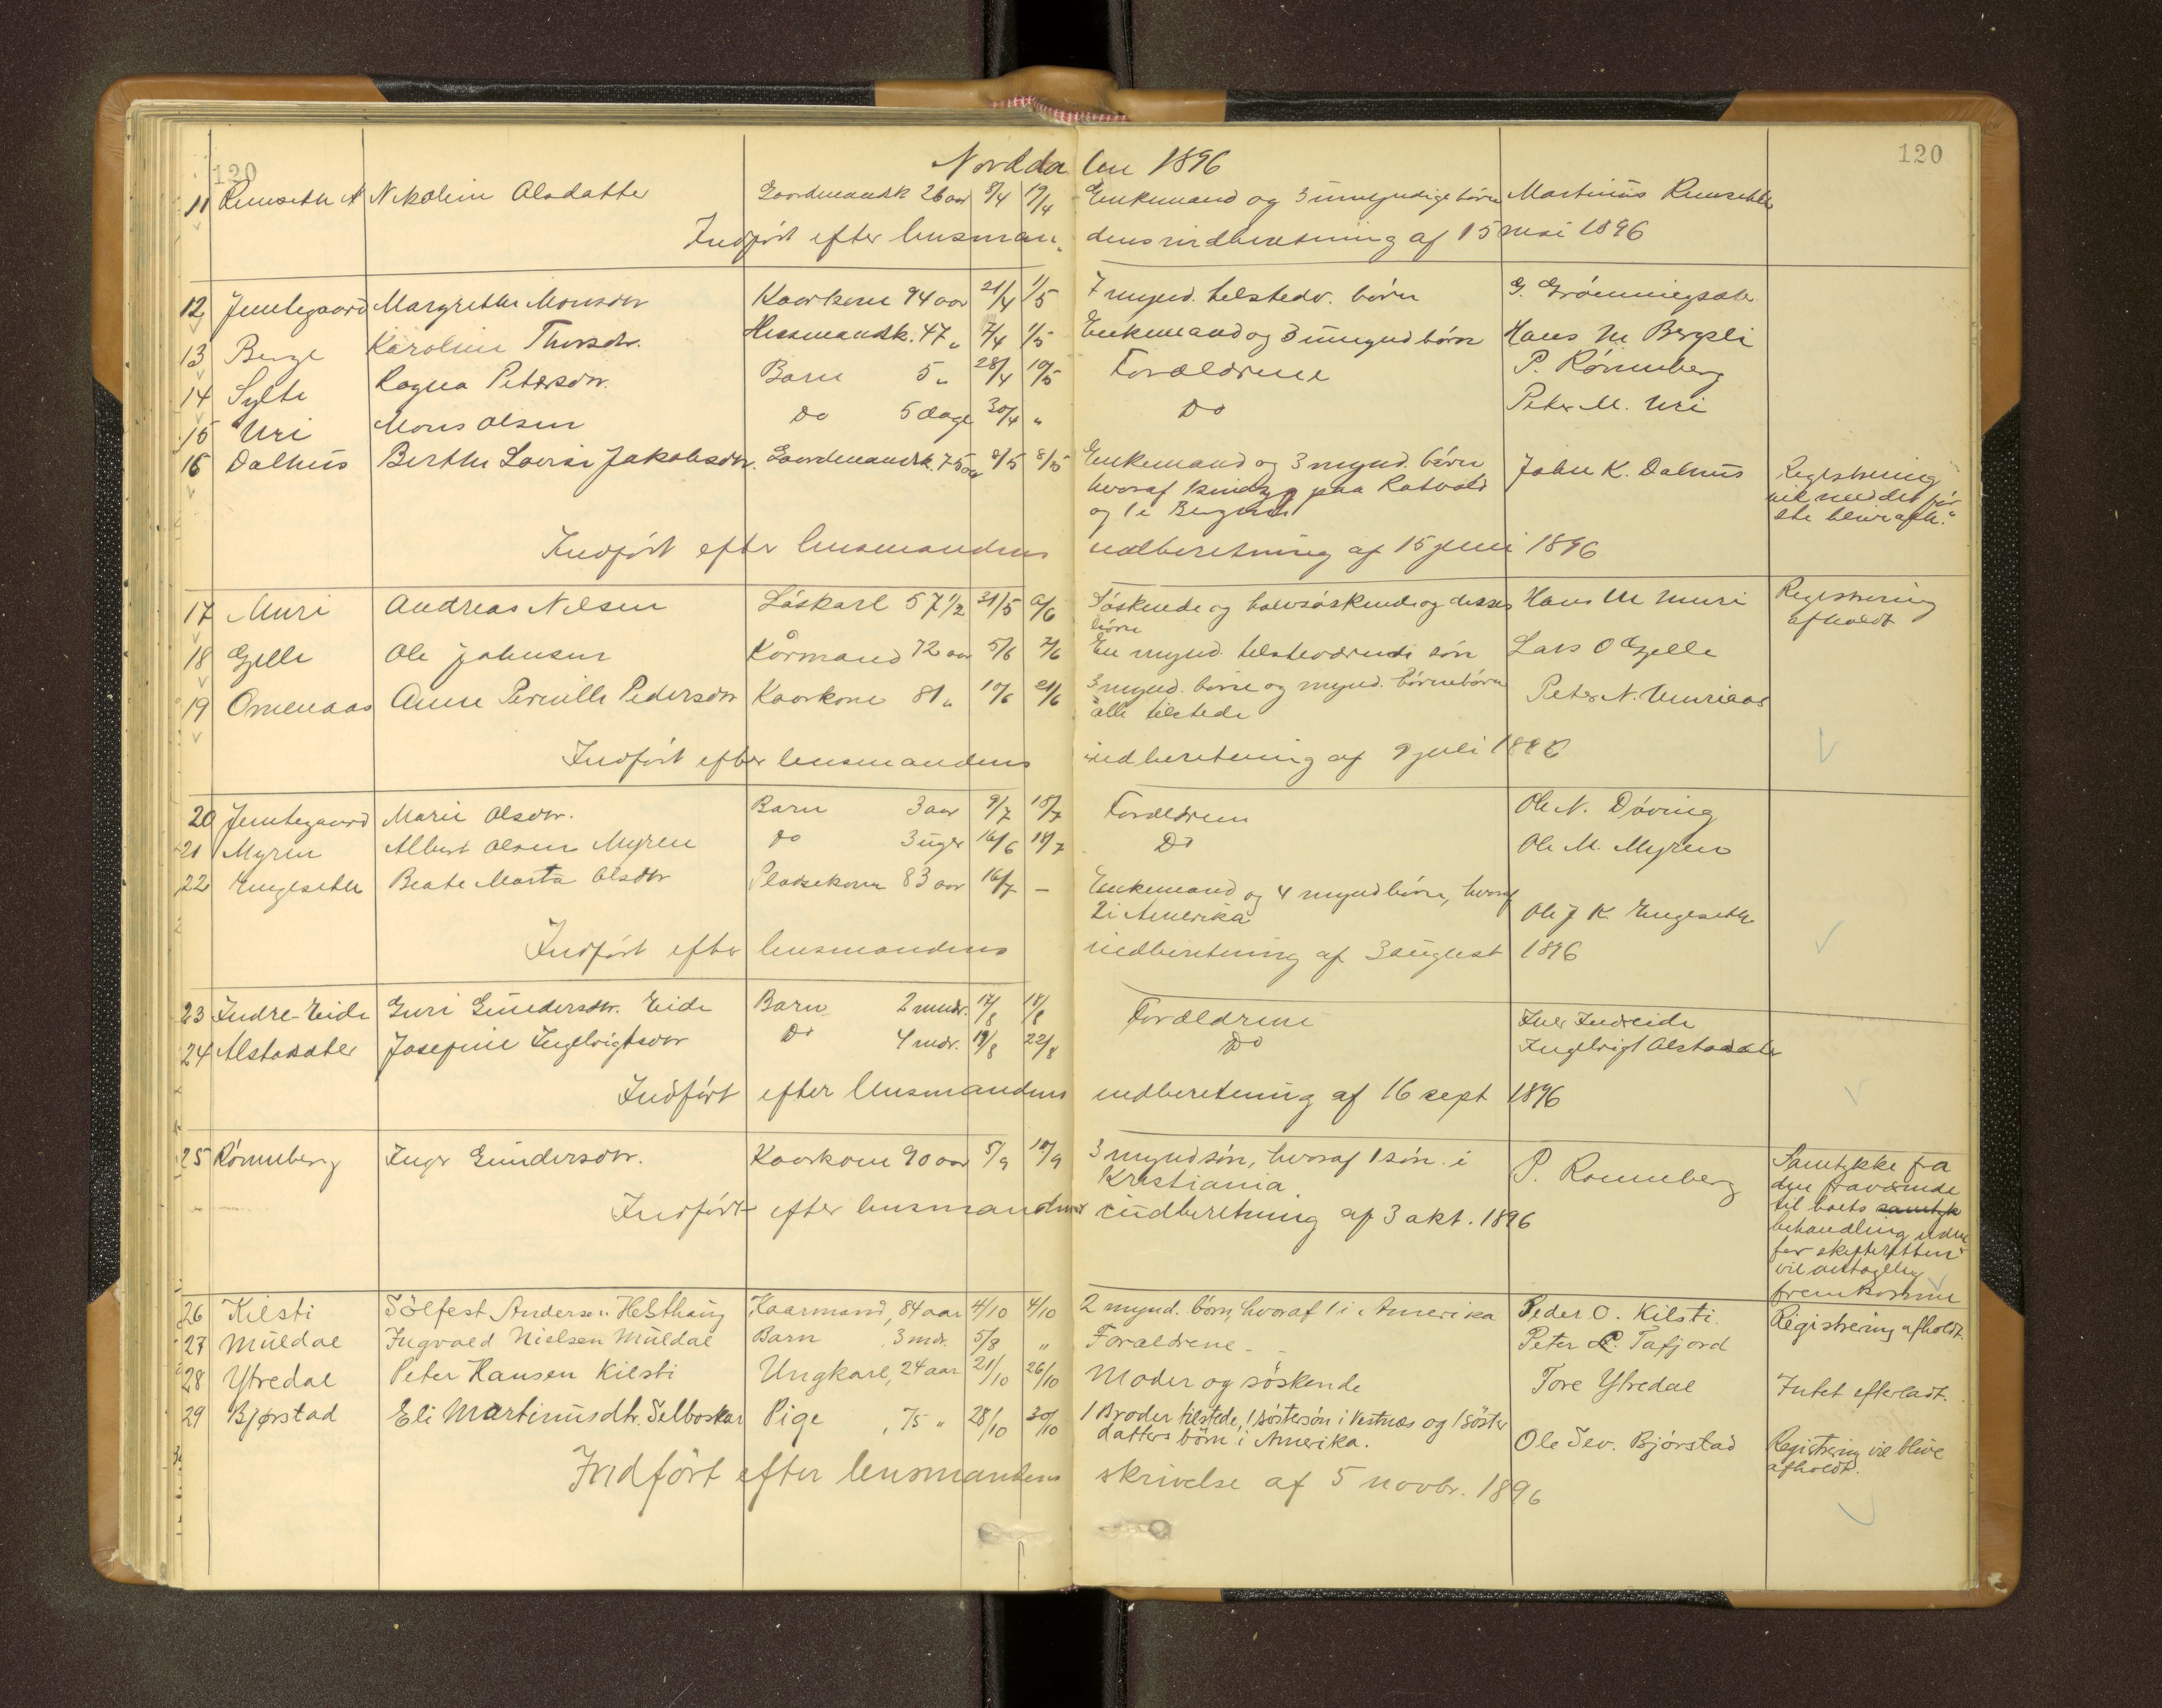 120
120
Norddalen 1896
11 Remseth N Nikoline Olsdatter Gaardmandsk 26 aar 8/4 19/4 Enkemand og 3 umyndige børn Martinus Remseth
Indført efter lensmandens indberetning af 15 mai 1896
12 Jemtegaard Margrethe Monsdtr Kaarkone 94 aar 21/4 1/5 7 mynd. tilstedv. børn G. Grønningsæter
13 Berge Karoline Thorsdtr. Husmandsk. 47 " 7/4 1/5 Enkemand og 3 umynd børn Hans M Bergeli
14 Sylte Ragna Petersdtr. Barn 5 " 28/4 10/5 Forældrene P. Rønneberg
15 Uri Mons Olsen Do 5 dage 30/4 " Do Peter M. Uri
16 Dalhus Berthe Lovise Jakobsdtr. Gaardmandsk. 75 aar 8/5 8/5 Enkemand og 3 mynd. børn John K. Dalhus Registrering
hvoraf paa vil med det før-
og 1 i Bergen ste blive afh.
Indført efter lensmandens indberetning af 15 juni 1896
17 Muri Andreas Nilsen Løskarl 57 1/2 31/5 6/6 Søskende og halvsøskende og disses Hans M Muri Registrering
børn afholdt
18 Gjelle Ole Johnsen Kårmand 72 aar 5/6 7/6 En mynd. tilstedværende søn Lars O Gjelle
19 Omenaas Anne Pernille Pedersdtr Kaarkone 81 " 10/6 21/6 3 mynd. børn og mynd. børnebørn Peter N. Muriaas
alle tilstede
Indført efter lensmandens indberetning af 9 juli 1896
20 Jemtegaard Marie Olsdtr. Barn 3 aar 9/7 18/7 Forældrene Ole N. Døving
21 Myren Albert Olsen Myren Do 3 uger 16/6 18/7 Do Ole M. Myren
22 Engeseth Beate Marta Olsdtr Pladsekone 83 aar 16/7 — Enkemand og 4 mynd børn, hvoraf
2 i Amerika Ole J K. Engeseth
Indført efter lensmandens indberetning af 3 august 1896
23 Indre-Eide Guri Gundersdtr. Eide Barn 2 mndr. 17/8 18/8 Forældrene Iver Indreide
24 Alstadsæter Josefine Ingebrigtsdtr Do 4 mdr. 19/8 22/8 Do Ingebrigt Alstadsæter
Indført efter lensmandens indberetning af 16 sept 1896
25 Rønneberg Inger Gundersdtr. Kaarkone 90 aar 5/9 10/9 3 mynd søn, hvoraf 1 søn i P. Rønneberg Samtykke fra
Kristiania den fraværende
Indført efter lensmandens indberetning af 3 okt. 1896 til boets samtyk
behandling uden
for skifteretten
vil antagelig
fremkomme
26 Kilsti Sölfest Andersen Hesthaug Kaarmand, 84 aar 4/10 4/10 2 mynd. börn, hvoraf 1 i Amerika Peder O. Kilsti. Registrering afholdt.
27 Muldal Ingvald Nielsen Muldal Barn, 3 mdr. 5/8 " Forældrene - Peter P. Tafjord
28 Ytredal Peter Hansen Kilsti Ungkarl, 24 aar 21/10 26/10 Moder og söskende Tore Ytredal Intet efterladt.
29 Bjørstad Eli Martinusdtr. Selboskar Pige, 75 " 28/10 30/10 1 Broder tilstede, 1 söstersøn i Vestnæs og 1 söster
datters börn i Amerika. Ole Sev. Bjørstad Registrering vil blive
afholdt.
Indført efter lensmandens skrivelse af 5 novbr. 1896